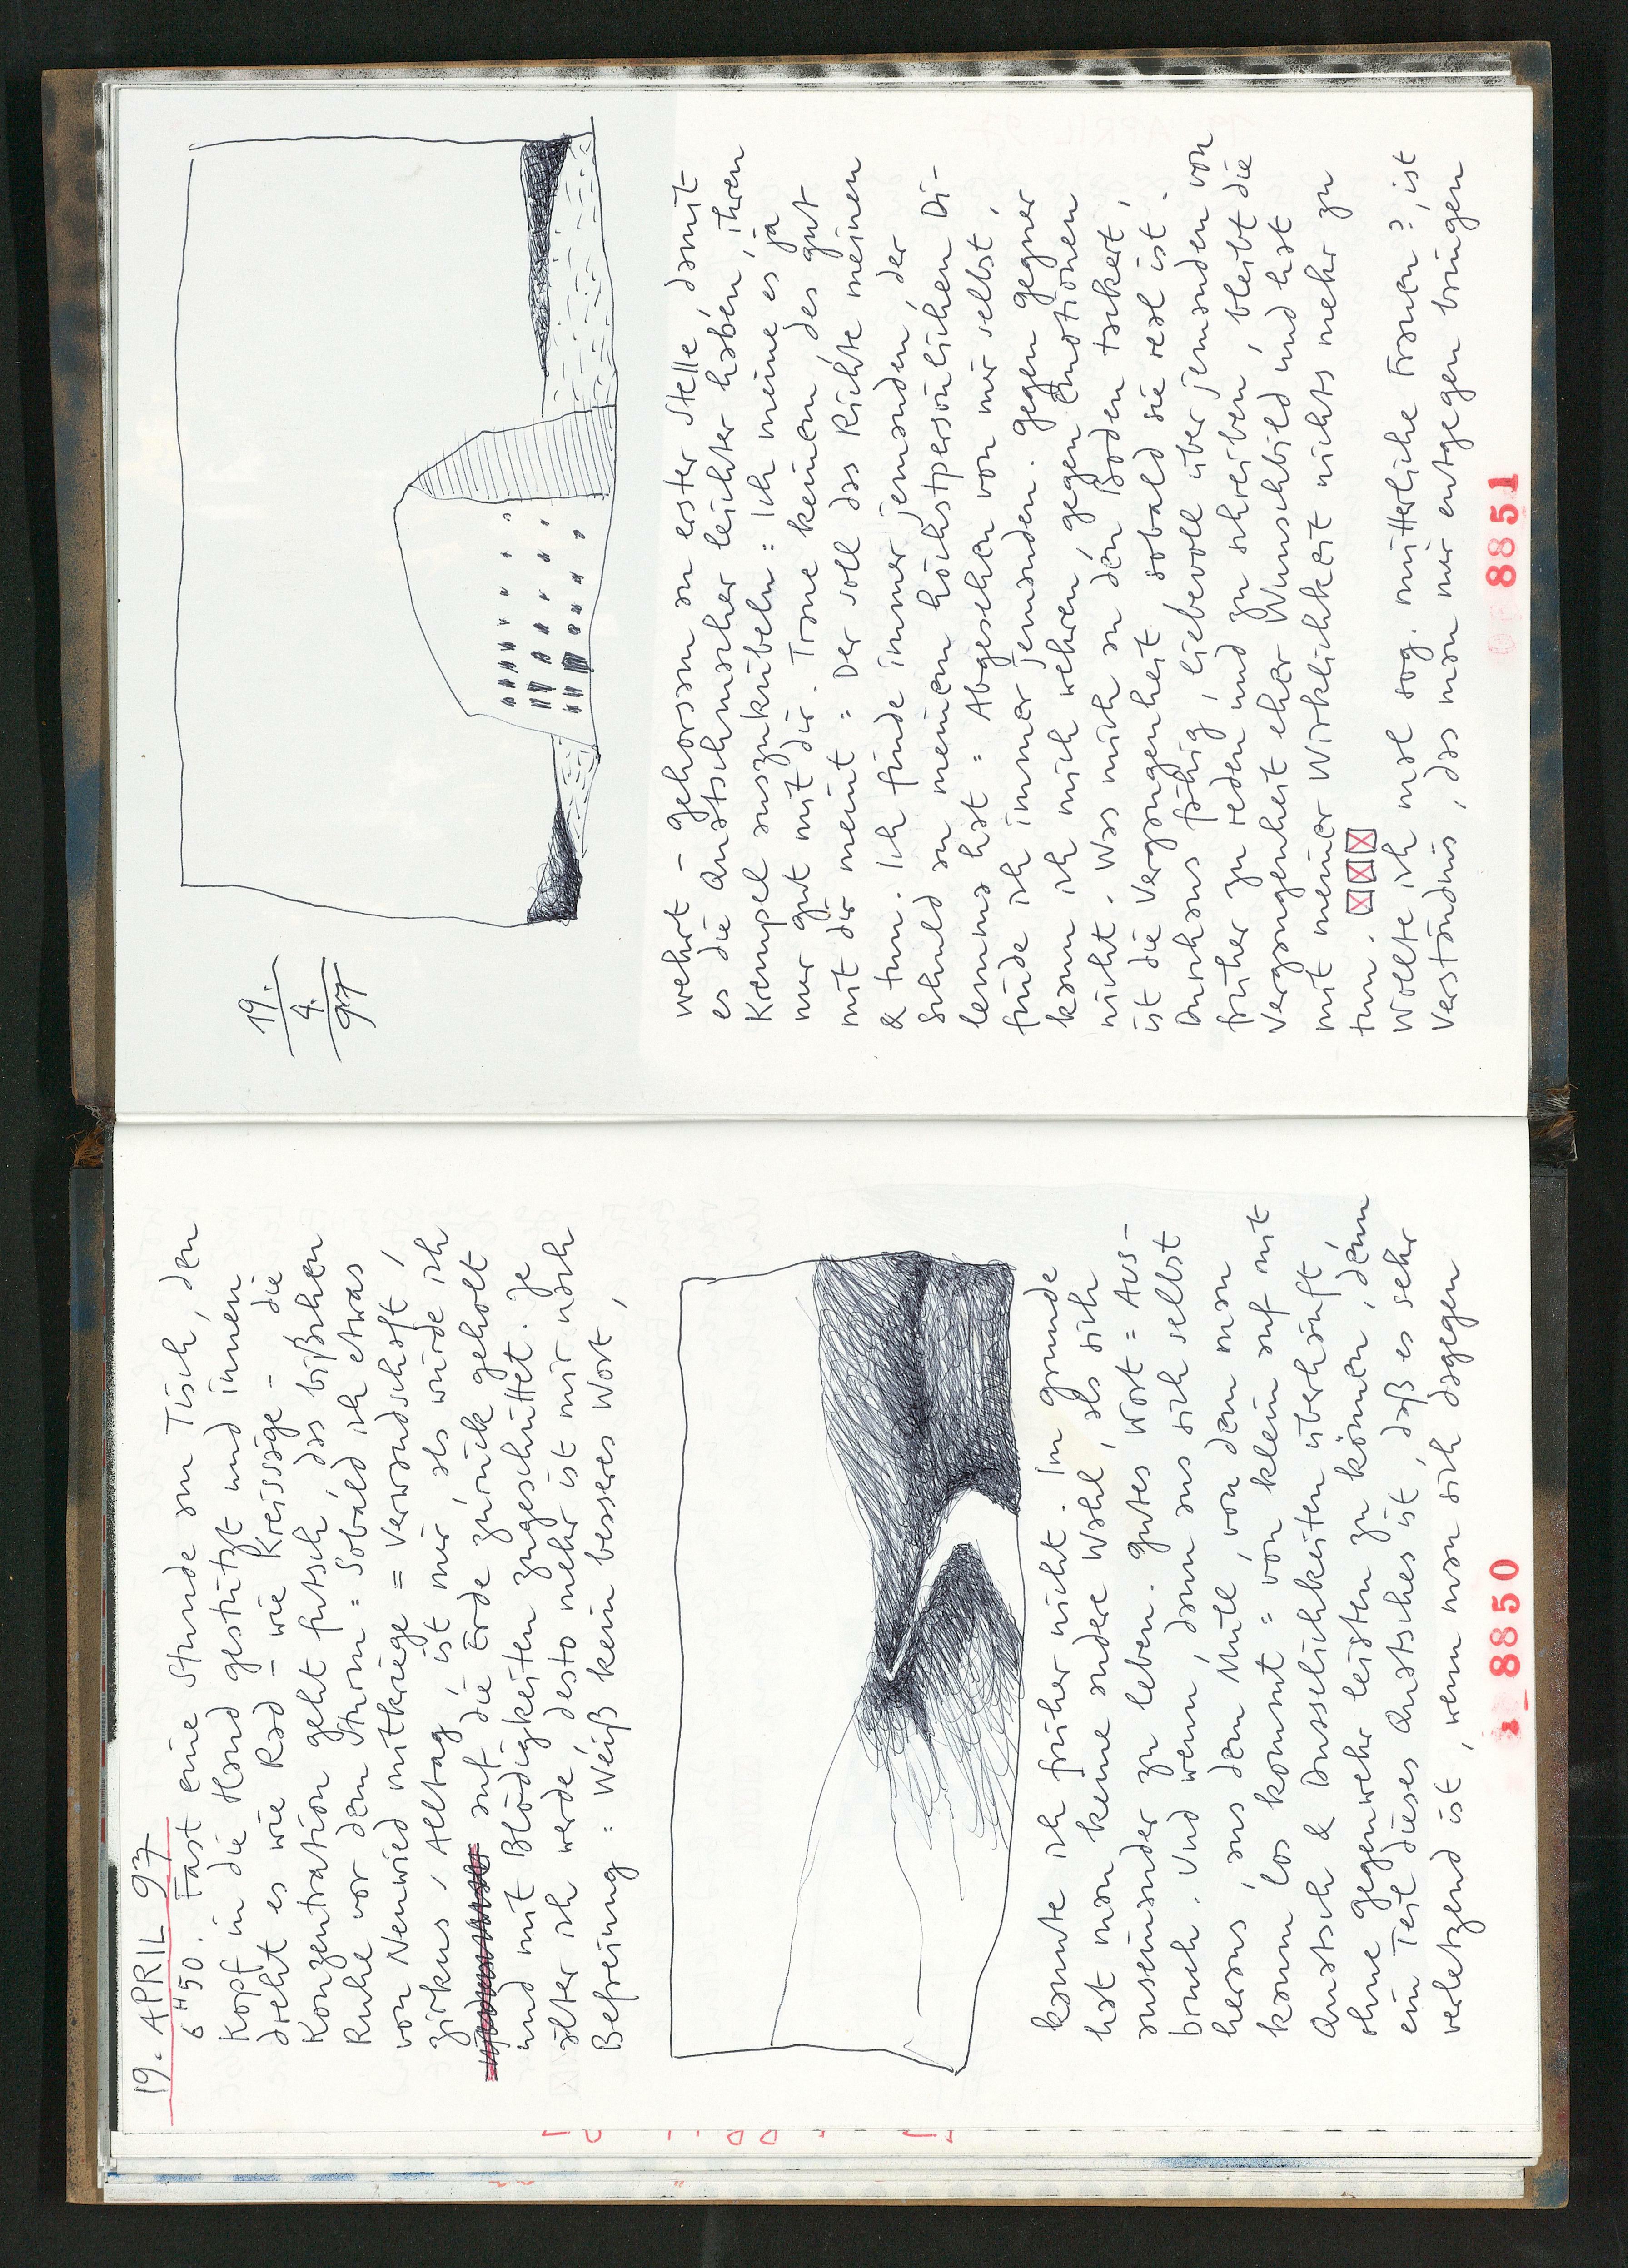 19. APRIL 97
6 H 50. Fast eine Stunde am Tisch, den
Kopf in die Hand gestützt und innen
dreht es wie Rad – wie Kreissäge – die
Konzentration geht futsch, das bißchen
Ruhe vor dem Sturm = Sobald ich etwas
von Neuwied mitkriege = Verwandschaft,
zirkus, Alltag, ist mir als würde ich
auf die Erde zurück geholt
und mit Blödigkeiten zugeschüttet. Je
älter ich werde desto mehr ist mir nach
Befreiung = Weiß kein besseres Wort,
kannte ich früher nicht. Im Grunde
hat man keine andere Wahl, als sich
auseinander zu leben. Gutes Wort = Aus-
bruch. Und wenn, dann aus sich selbst
heraus, aus dem Müll, von dem man
kaum los kommt = von klein auf mit
Quatsch & Dusselichkeiten überhäuft,
ohne Gegenwehr leisten zu können, denn
ein Teil dieses Quatsches ist, daß es sehr
verletzend ist, wenn man sich dagegen
8850
19.
4.
97
wehrt – gehorsam an erster Stelle, damit
es die Quatschmacher leichter haben, ihren
Krempel auszukübeln = Ich meine es ja
nur gut mit dir. Traue keinem, des gut
mit dir meint = Der soll das Richte meinen
& tun. Ich finde immer jemanden, der
Schuld an meinem höchstpersönlichen Di-
lemma hat = Abgesehen von mir selbst,
finde ich immer jemanden. Gegen Gegner
kann ich mich wehren, gegen Emotionen
nicht. Was mich an den Boden tackert,
ist die Vergangenheit, sobald sie real ist.
Durchaus fähig, liebevoll über jemanden von
früher zu reden und zu schreiben, bleibt die
Vergangenheit eher Wunschbild und hat
mit meiner Wirklichkeit nichts mehr zu
tun.
Wollte ich mal sog. mütterliche Frauen?, ist
Verständnis, das man mir entgegen bringen
8851